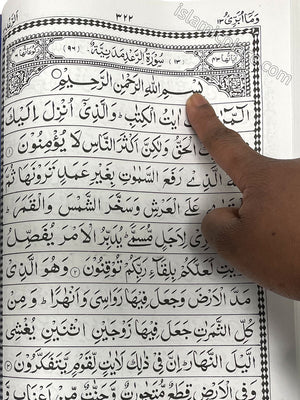 وَمَآ اُبَرِّئُ ١٣
٣٢٢
islam
سُوْرَةُ الرَّعْدِ مَدَنِيَّةٌ
(١٣)
(٩٦)
بِسْمِ اللّٰهِ الرَّحْمٰنِ الرَّحِيْمِ
الٓمّٓرٰ اٰيٰتُ الْكِتٰبِ ؕ وَالَّذِيْۤ اُنْزِلَ اِلَيْكَ
الْحَقُّ وَلٰكِنَّ اَكْثَرَ النَّاسِ لَا يُؤْمِنُوْنَ ۝۱
الَّذِيْ رَفَعَ السَّمٰوٰتِ بِغَيْرِ عَمَدٍ تَرَوْنَهَا ثُمَّ
عَلَى الْعَرْشِ وَسَخَّرَ الشَّمْسَ وَالْقَمَرَ ؕ
لِاَجَلٍ مُّسَمًّى ؕ يُدَبِّرُ الْاَمْرَ يُفَصِّلُ
لَعَلَّكُمْ بِلِقَآءِ رَبِّكُمْ تُوْقِنُوْنَ ۝۲ وَهُوَ الَّذِيْ
مَدَّ الْاَرْضَ وَجَعَلَ فِيْهَا رَوَاسِيَ وَاَنْهٰرًا ؕ وَمِنْ
كُلِّ الثَّمَرٰتِ جَعَلَ فِيْهَا زَوْجَيْنِ اثْنَيْنِ يُغْشِي
الَّيْلَ النَّهَارَ ؕ اِنَّ فِيْ ذٰلِكَ لَاٰيٰتٍ لِّقَوْمٍ يَّتَفَكَّرُوْنَ ۝۳
وَفِي الْاَرْضِ قِطَعٌ مُّتَجٰوِرٰتٌ وَّجَنّٰتٌ مِّنْ اَعْنَابٍ